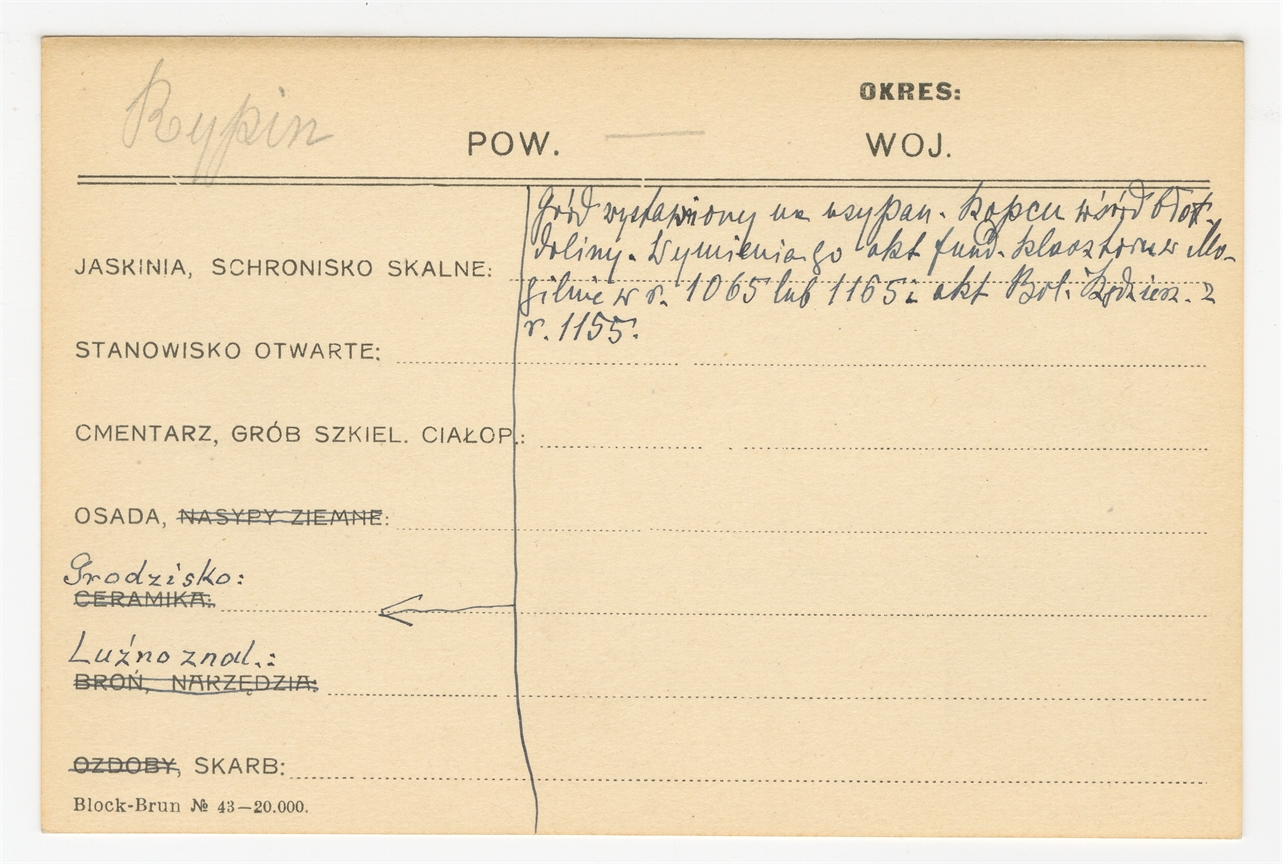 Rypin
OKRES:
POW. — WOJ.
Gród wystawiony na usypan. kopcu wśród błot.
doliny. Wymienia go akt fund. klasztoru w Mo-
gilnie w r. 1065 lub 1165 i akt Bol. Kędzierz. z
r. 1155.
JASKINIA, SCHRONISKO SKALNE:
STANOWISKO OTWARTE:
CMENTARZ, GRÓB SZKIEL. CIAŁOP.:
OSADA, NASYPY ZIEMNE:
Grodzisko:
CERAMIKA:
Luźno znal.:
BROŃ, NARZĘDZIA:
OZDOBY, SKARB:
Block-Brun № 43—20.000.